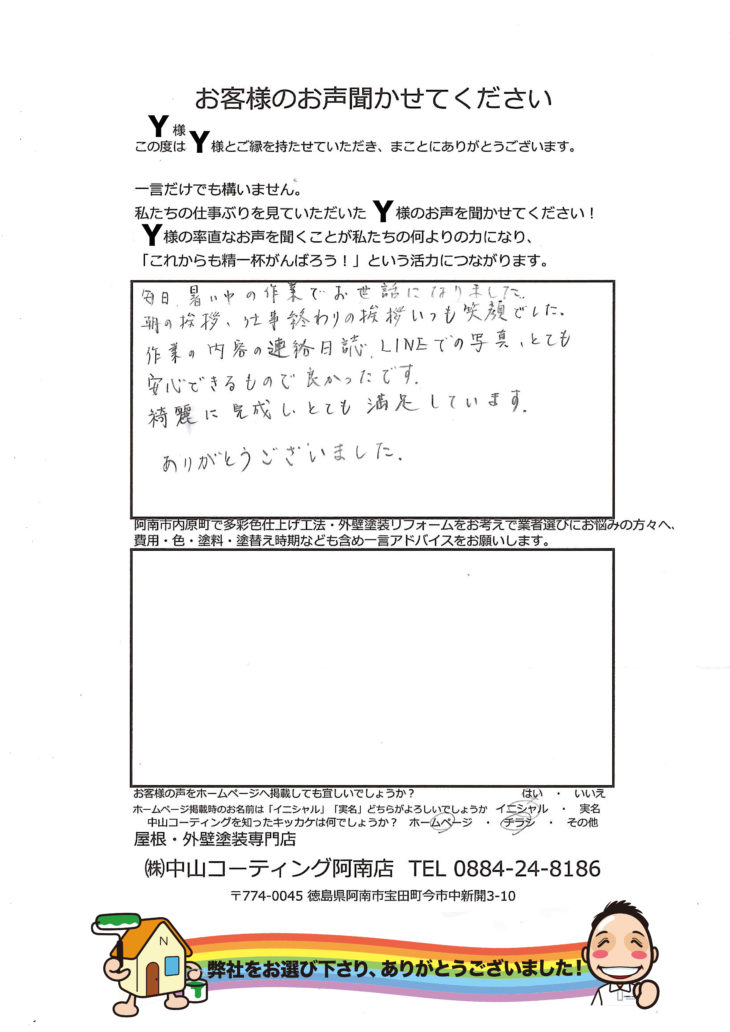 お客様のお声聞かせてください
Y様
この度はY様とご縁を持たせていただき、まことにありがとうございます。
一言だけでも構いません。
私たちの仕事ぶりを見ていただいたY様のお声を聞かせてください！
Y様の率直なお声を聞くことが私たちの何よりの力になり、
「これからも精一杯がんばろう！」という活力につながります。
毎日、暑い中の作業でお世話になりました。
朝の挨拶、仕事終わりの挨拶いつも笑顔でした。
作業の内容の連絡日誌、LINEでの写真、とても
安心できるもので良かったです。
綺麗に完成し、とても満足しています。
ありがとうございました。
阿南市内原町で多彩色仕上げ工法・外壁塗装リフォームをお考えで業者選びにお悩みの方々へ、
費用・色・塗料・塗替え時期なども含め一言アドバイスをお願いします。
お客様の声をホームページへ掲載しても宜しいでしょうか？ はい ・ いいえ
ホームページ掲載時のお名前は「イニシャル」「実名」どちらがよろしいでしょうか イニシャル ・ 実名
中山コーティングを知ったキッカケは何でしょうか？ ホームページ ・ チラシ ・ その他
屋根・外壁塗装専門店
㈱中山コーティング阿南店 TEL 0884-24-8186
〒774-0045 徳島県阿南市宝田町今市中新開3-10
N
弊社をお選び下さり、ありがとうございました！